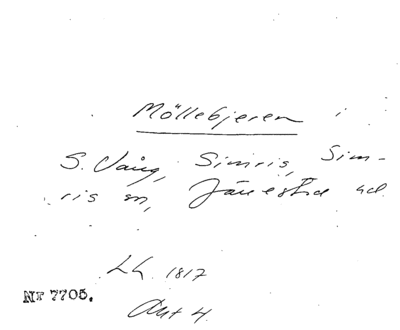 Möllebjeren i
S. Vång, Simris, Sim-
ris sn, Järrestad hd.
Lh. 1817
Akt 4.
Nr 7705.